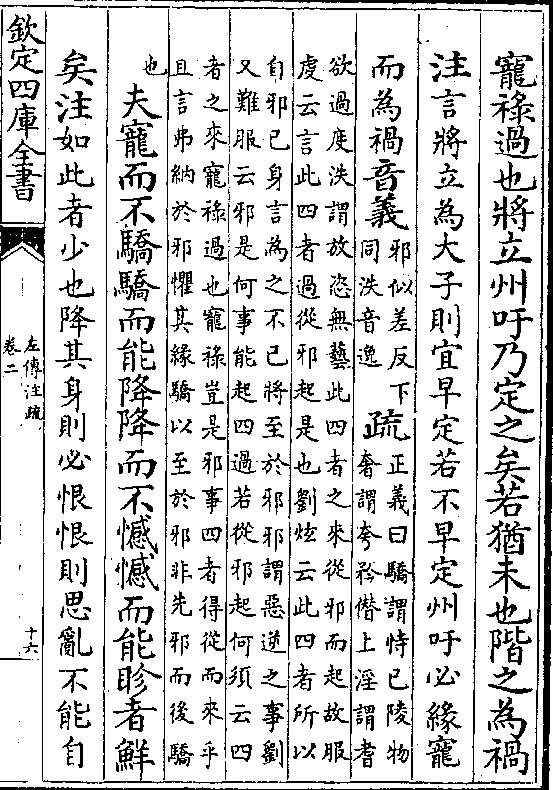 寵祿過也將立州吁乃定之矣若猶未也階之為禍
注言將立為大子則宜早定若不早定州吁必緣寵
而為禍音義邪似差反下同泆音逸疏正義曰驕謂恃己陵物奢謂夸矜僭上淫謂耆
欲過度泆謂放恣無藝此四者之來從邪而起故服
虔云言此四者過從邪起是也劉炫云此四者所以
自邪己身言為之不已將至於邪邪謂惡逆之事劉
又難服云邪是何事能起四過若從邪起何須云四
者之來寵祿過也寵祿豈是邪事四者得從而來乎
且言弗納於邪懼其緣驕以至於邪非先邪而後驕
也
夫寵而不驕驕而能降降而不憾憾而能眕者鮮
矣注如此者少也降其身則必恨恨則思亂不能自
欽定四庫全書
左傳注疏
卷二
十六